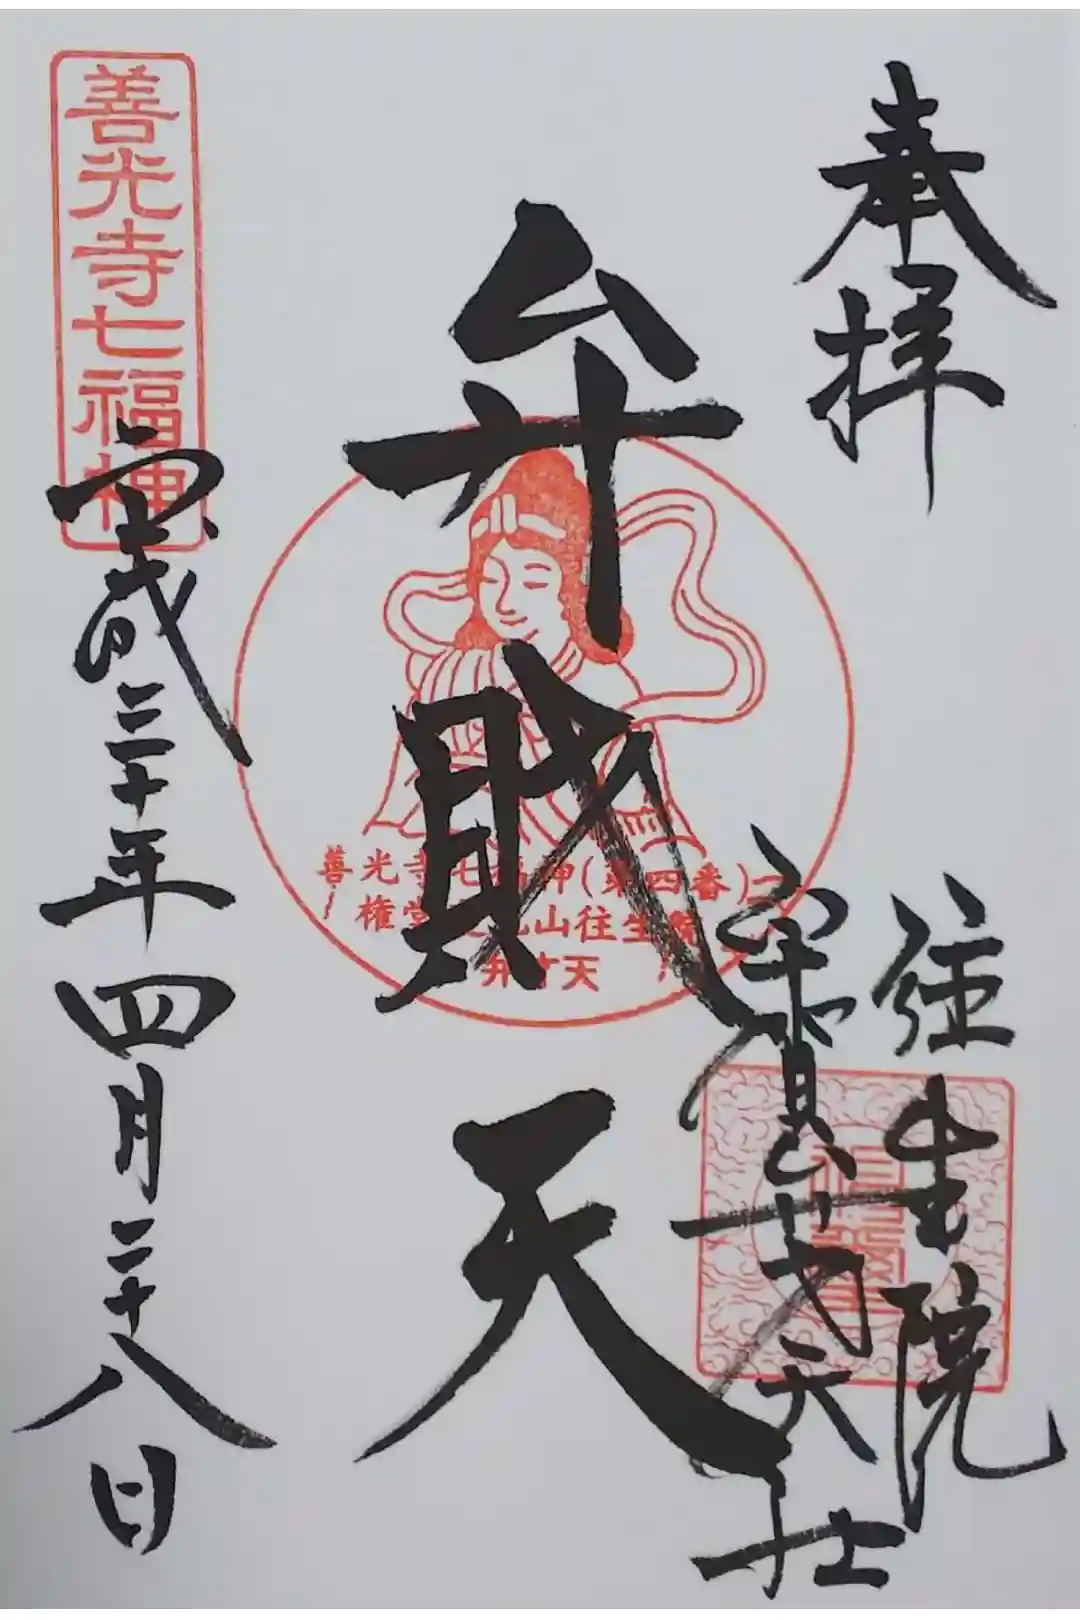 奉拝
往生院
宇賀弁才天社
弁財天
善光寺七福神(第四番)
権堂 山往生院
弁才天
善光寺七福神
平成三十年四月二十八日